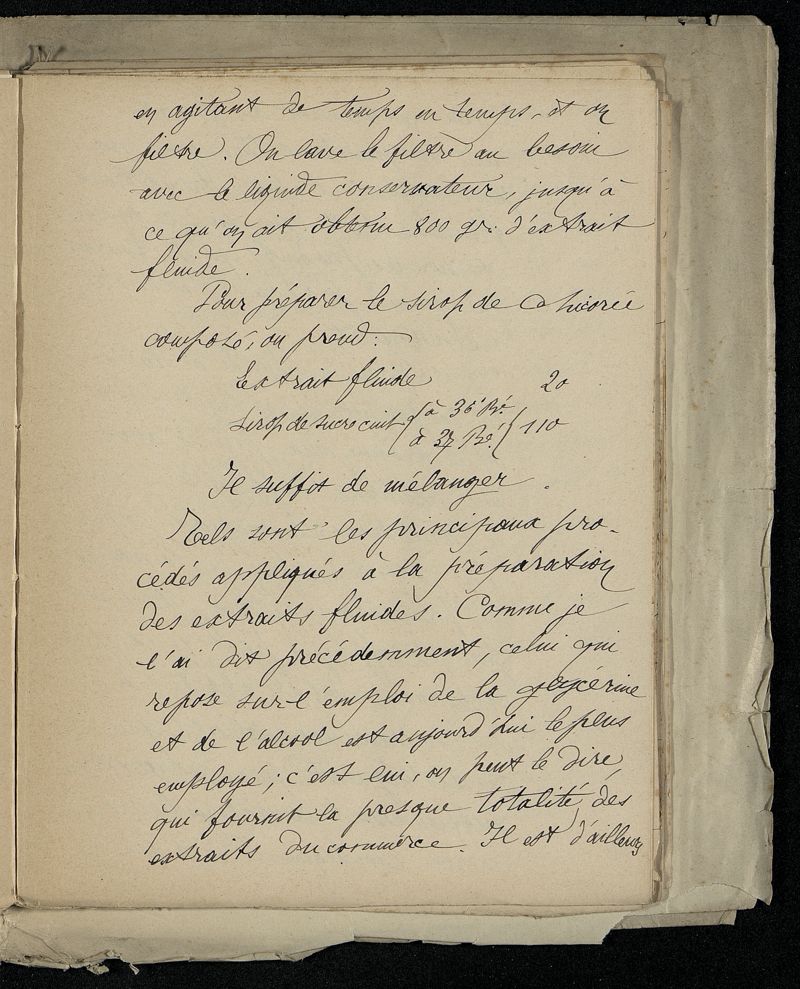 en agitant de temps en temps, et on
filtre. On lave le filtre au besoin
avec le liquide conservateur, jusqu'à
ce qu'on ait obtenu 800 gr. d'extrait
fluide.
Pour préparer le sirop de Chicorée
composé, on prend:
Extrait fluide 20
Sirop de sucre cuit { à 36° Bé.
à 37 Bé. } 110
Il suffit de mélanger.
Tels sont les principaux pro-
cédés appliqués à la préparation
des extraits fluides. Comme je
l'ai dit précédemment, celui qui
repose sur l'emploi de la glycérine
et de l'alcool est aujourd'hui le plus
employé; c'est lui, on peut le dire,
qui fournit la presque totalité des
extraits du commerce. Il est d'ailleurs